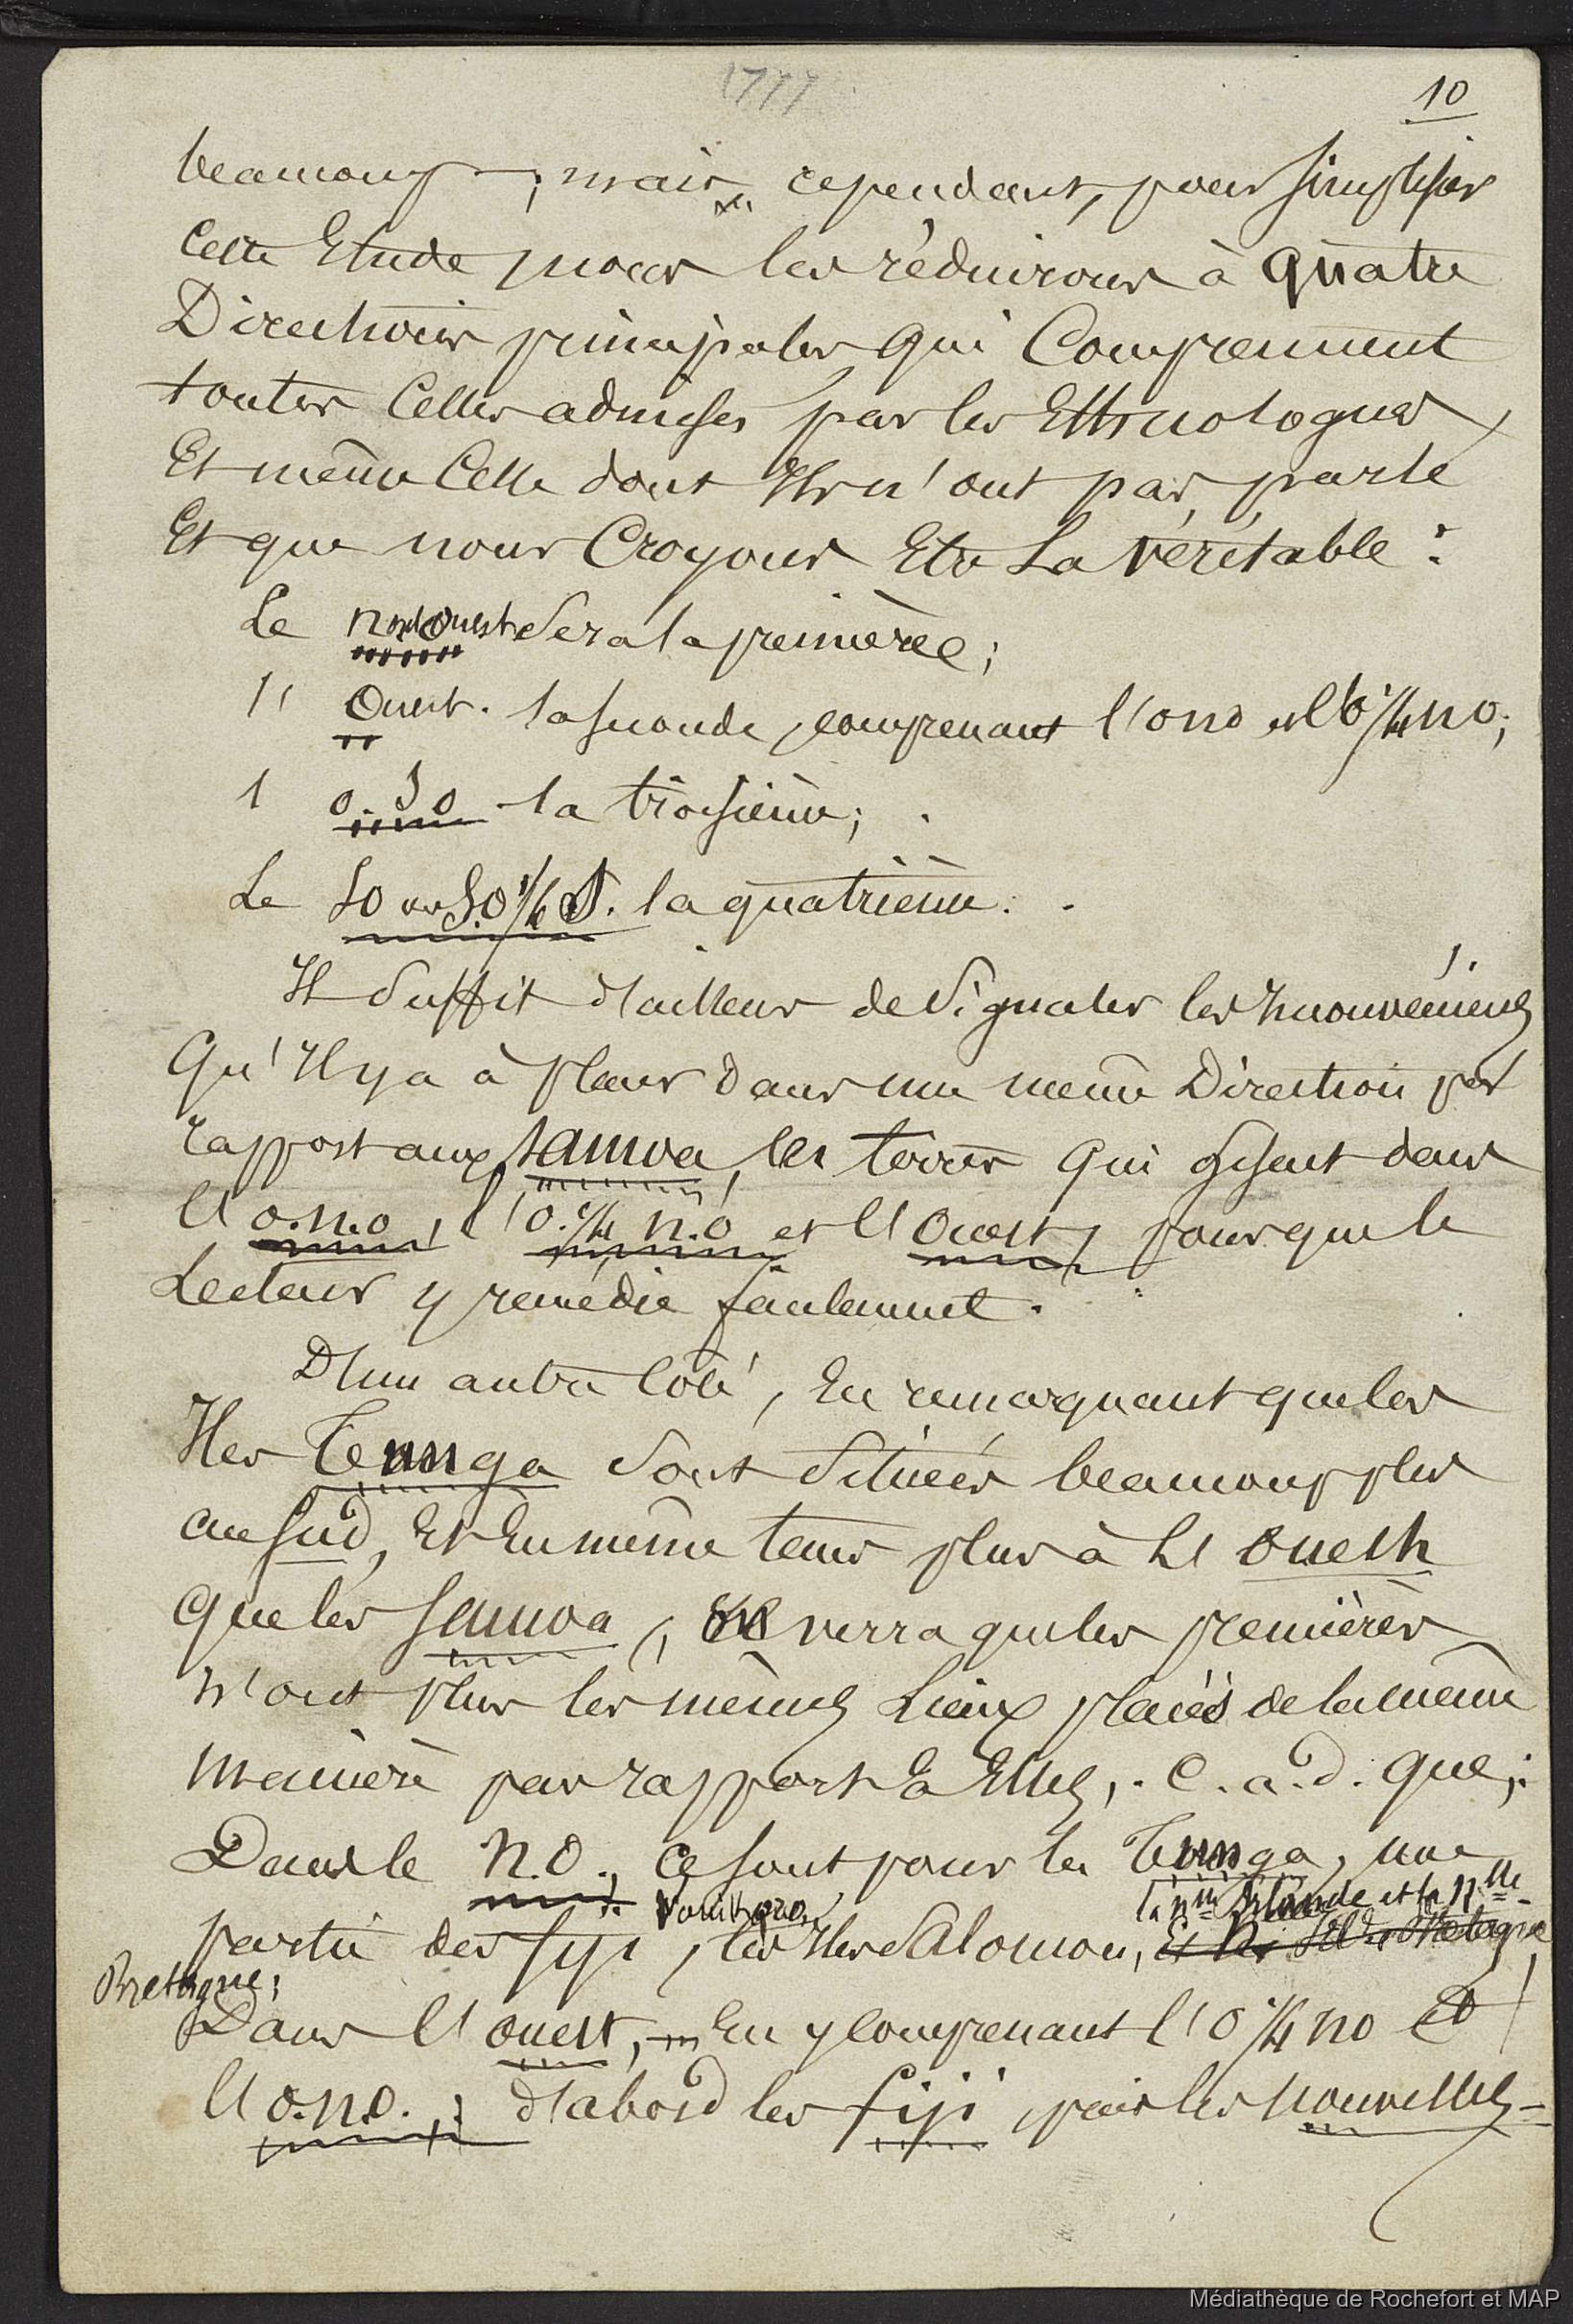 10
beaucoup ; mais cependant, pour simplifier
cette Etude nous les réduirons à quatre
Directions principales qui Comprennent
toutes Celles admises par les Ethnologues
Et même Celle dont Ils n'ont pas parlé
Et que nous Croyons Etre La véritable :
Le nord ouest Sera la première ;
l' Ouest . la seconde, comprenant l'ono et l'o 1/4 no ;
l' o. S o la troisième ;
Le SO ou S.O 1/4 S. la quatrième .
Il Suffit d'ailleurs de Signaler les mouvements
Qu'Il y a à placer dans une même Direction par
rapport aux Samoa, les terres qui gisent dans
l'o.n.o, l'o. 1/4 n.o et l'Ouest, pour que le
Lecteur y remédie facilement .
D'un autre Côté, En remarquant que les
Iles Tunga Sont Situées beaucoup plus
au Sud, Et En même tems plus à L'ouest
que les Samoa, verra que les premières
n'ont plus les mêmes Lieux placés de la même
manière par rapport à Elles, . C. a. d. que ;
Dans le N.O., Ce sont pour les Tunga, une
Vanikoro, la nlle Irlande et la nlle
partie des fiji, les Iles Salomon,
Bretagne ;
Dans l'ouest, En y comprenant l'o 1/4 no Et
l'o.n.o. , d'abord les fiji, puis les nouvelles=
Médiathèque de Rochefort et MAP